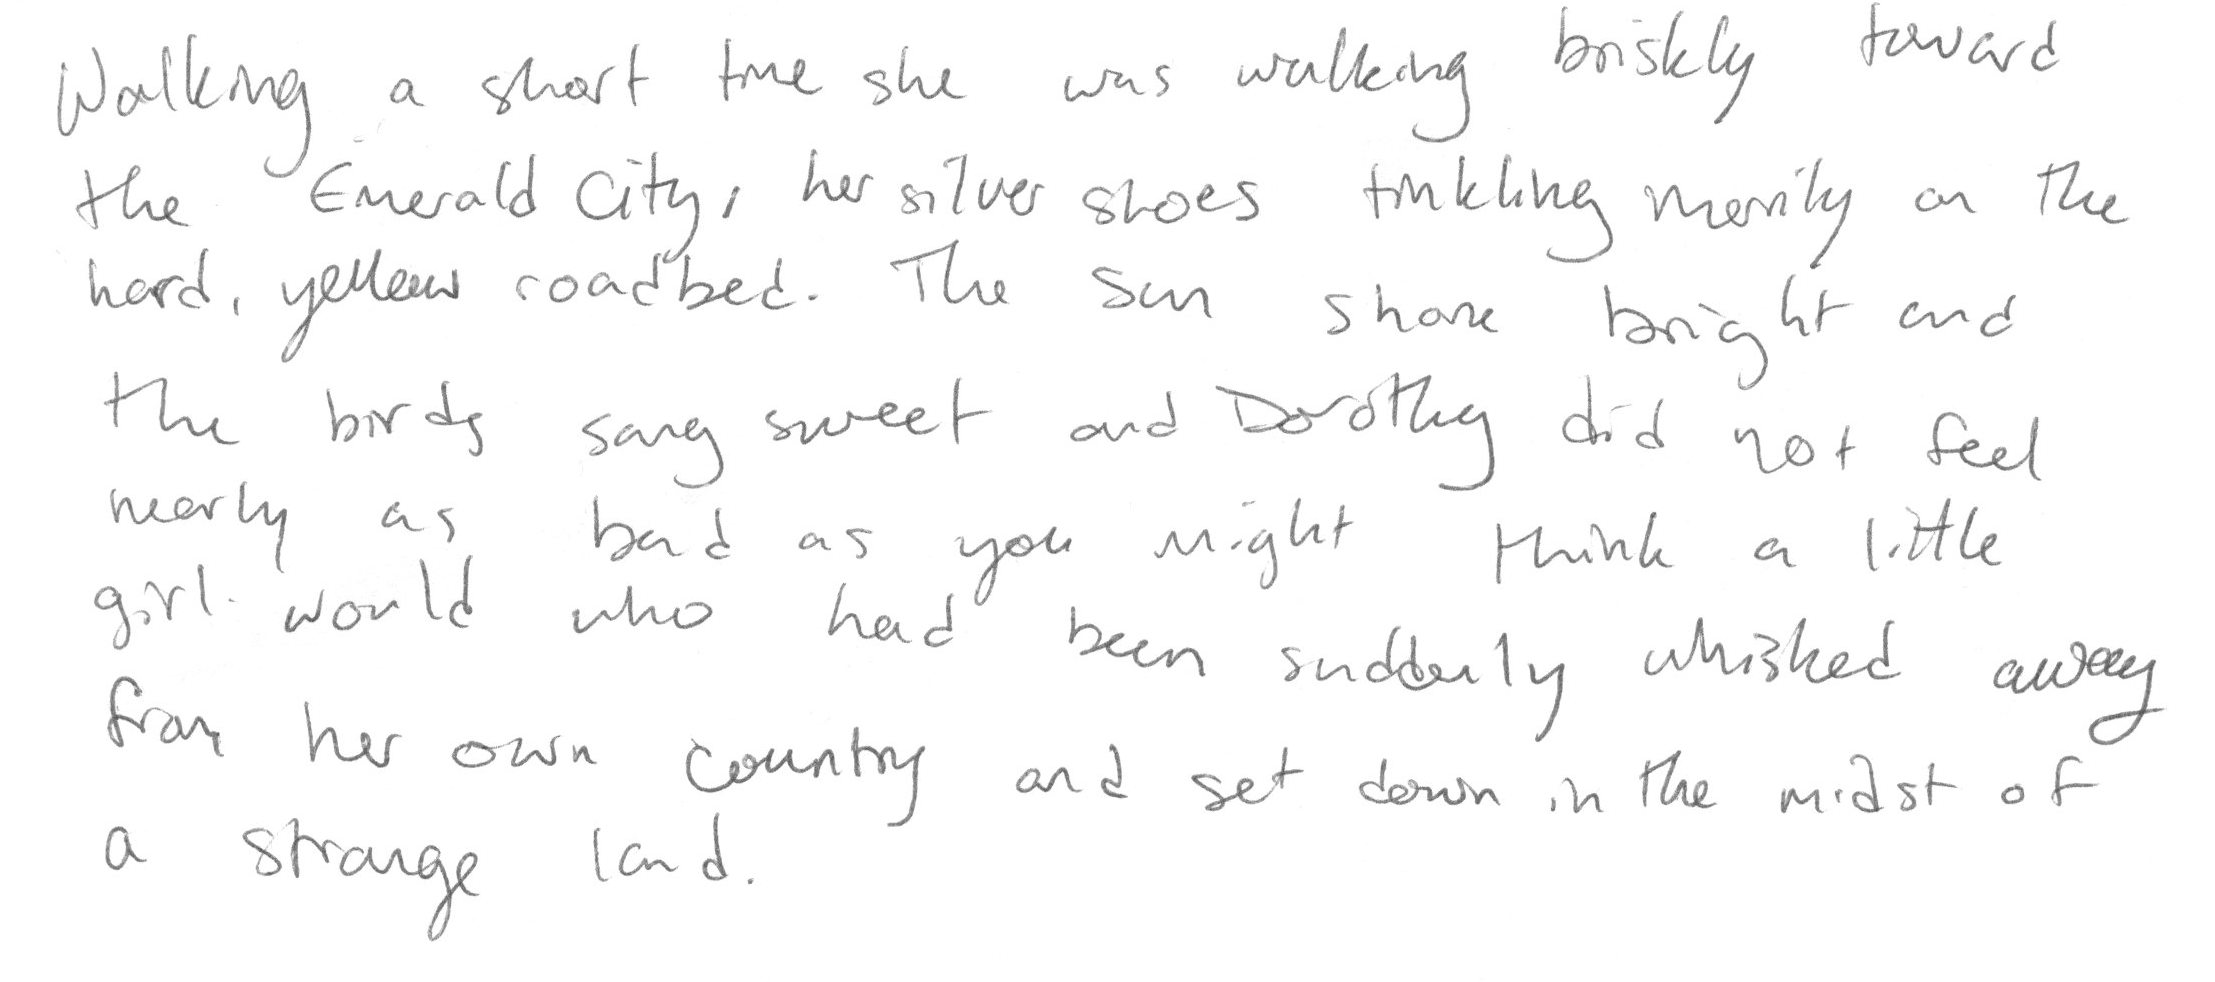 Walking a short time she was walking briskly toward
the Emerald City, her silver shoes tinkling merrily on the
hard, yellow roadbed. The sun shone bright and
the birds sang sweet and Dorothy did not feel
nearly as bad as you might think a little
girl would who had been suddenly whisked away
from her own country and set down in the midst of
a strange land.